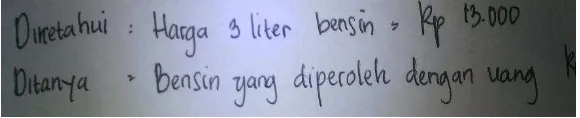 Diketahui : Harga 3 liter bensin = Rp 13.000
Ditanya = Bensin yang diperoleh dengan uang